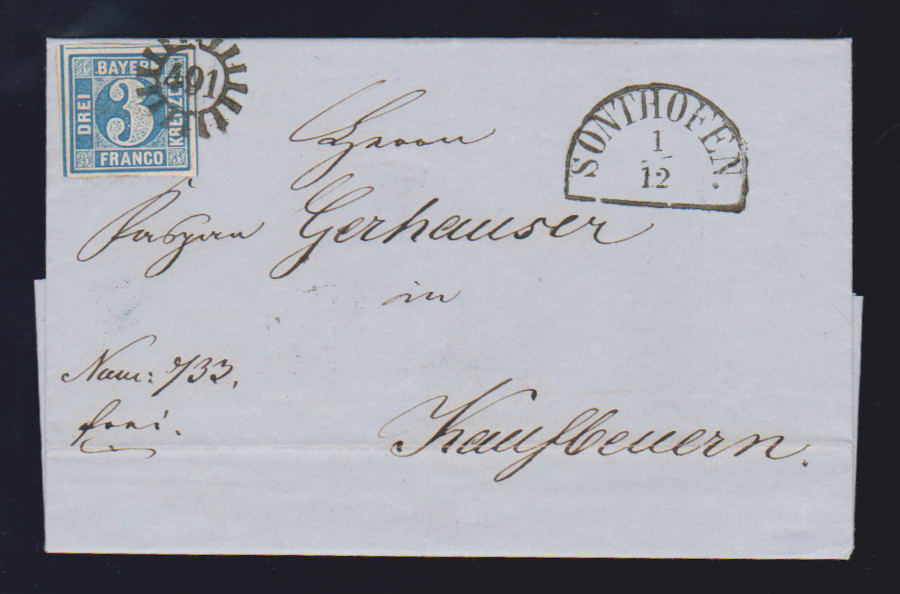 BAYERN
DREI
3
KREUZER
FRANCO
491
SONTHOFEN.
1
12
Herrn
Kaspar Gerhauser
in
Num: 733.
frei.
Kaufbeuern.